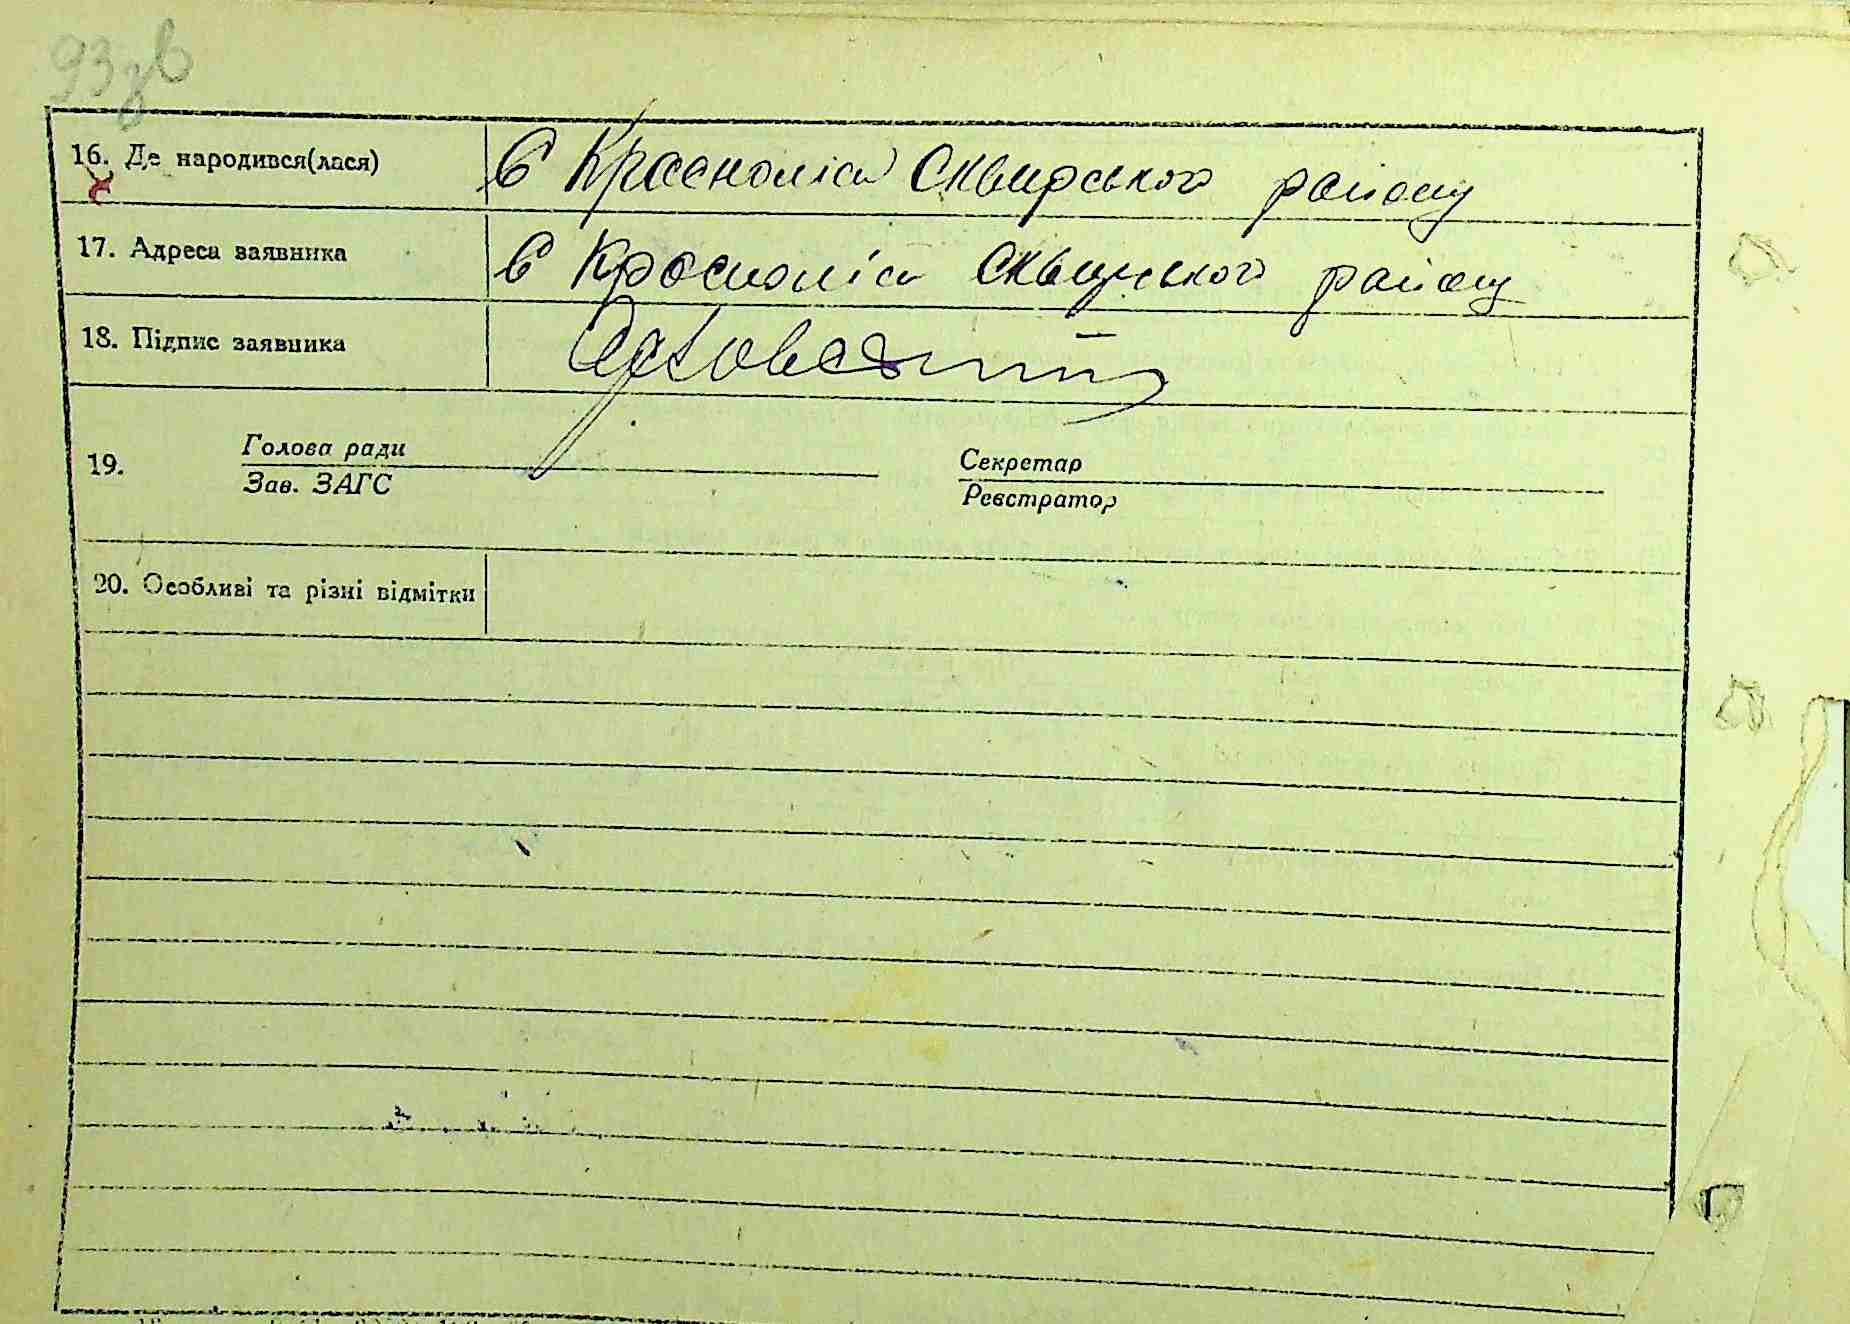 93зв
16. Де народився(лася) с Краснолісі Сквирського району
17. Адреса заявника с Краснолісі Сквирського району
18. Підпис заявника
19. Голова ради
Зав. ЗАГС
Секретар
Реєстратор
20. Особливі та різні відмітки